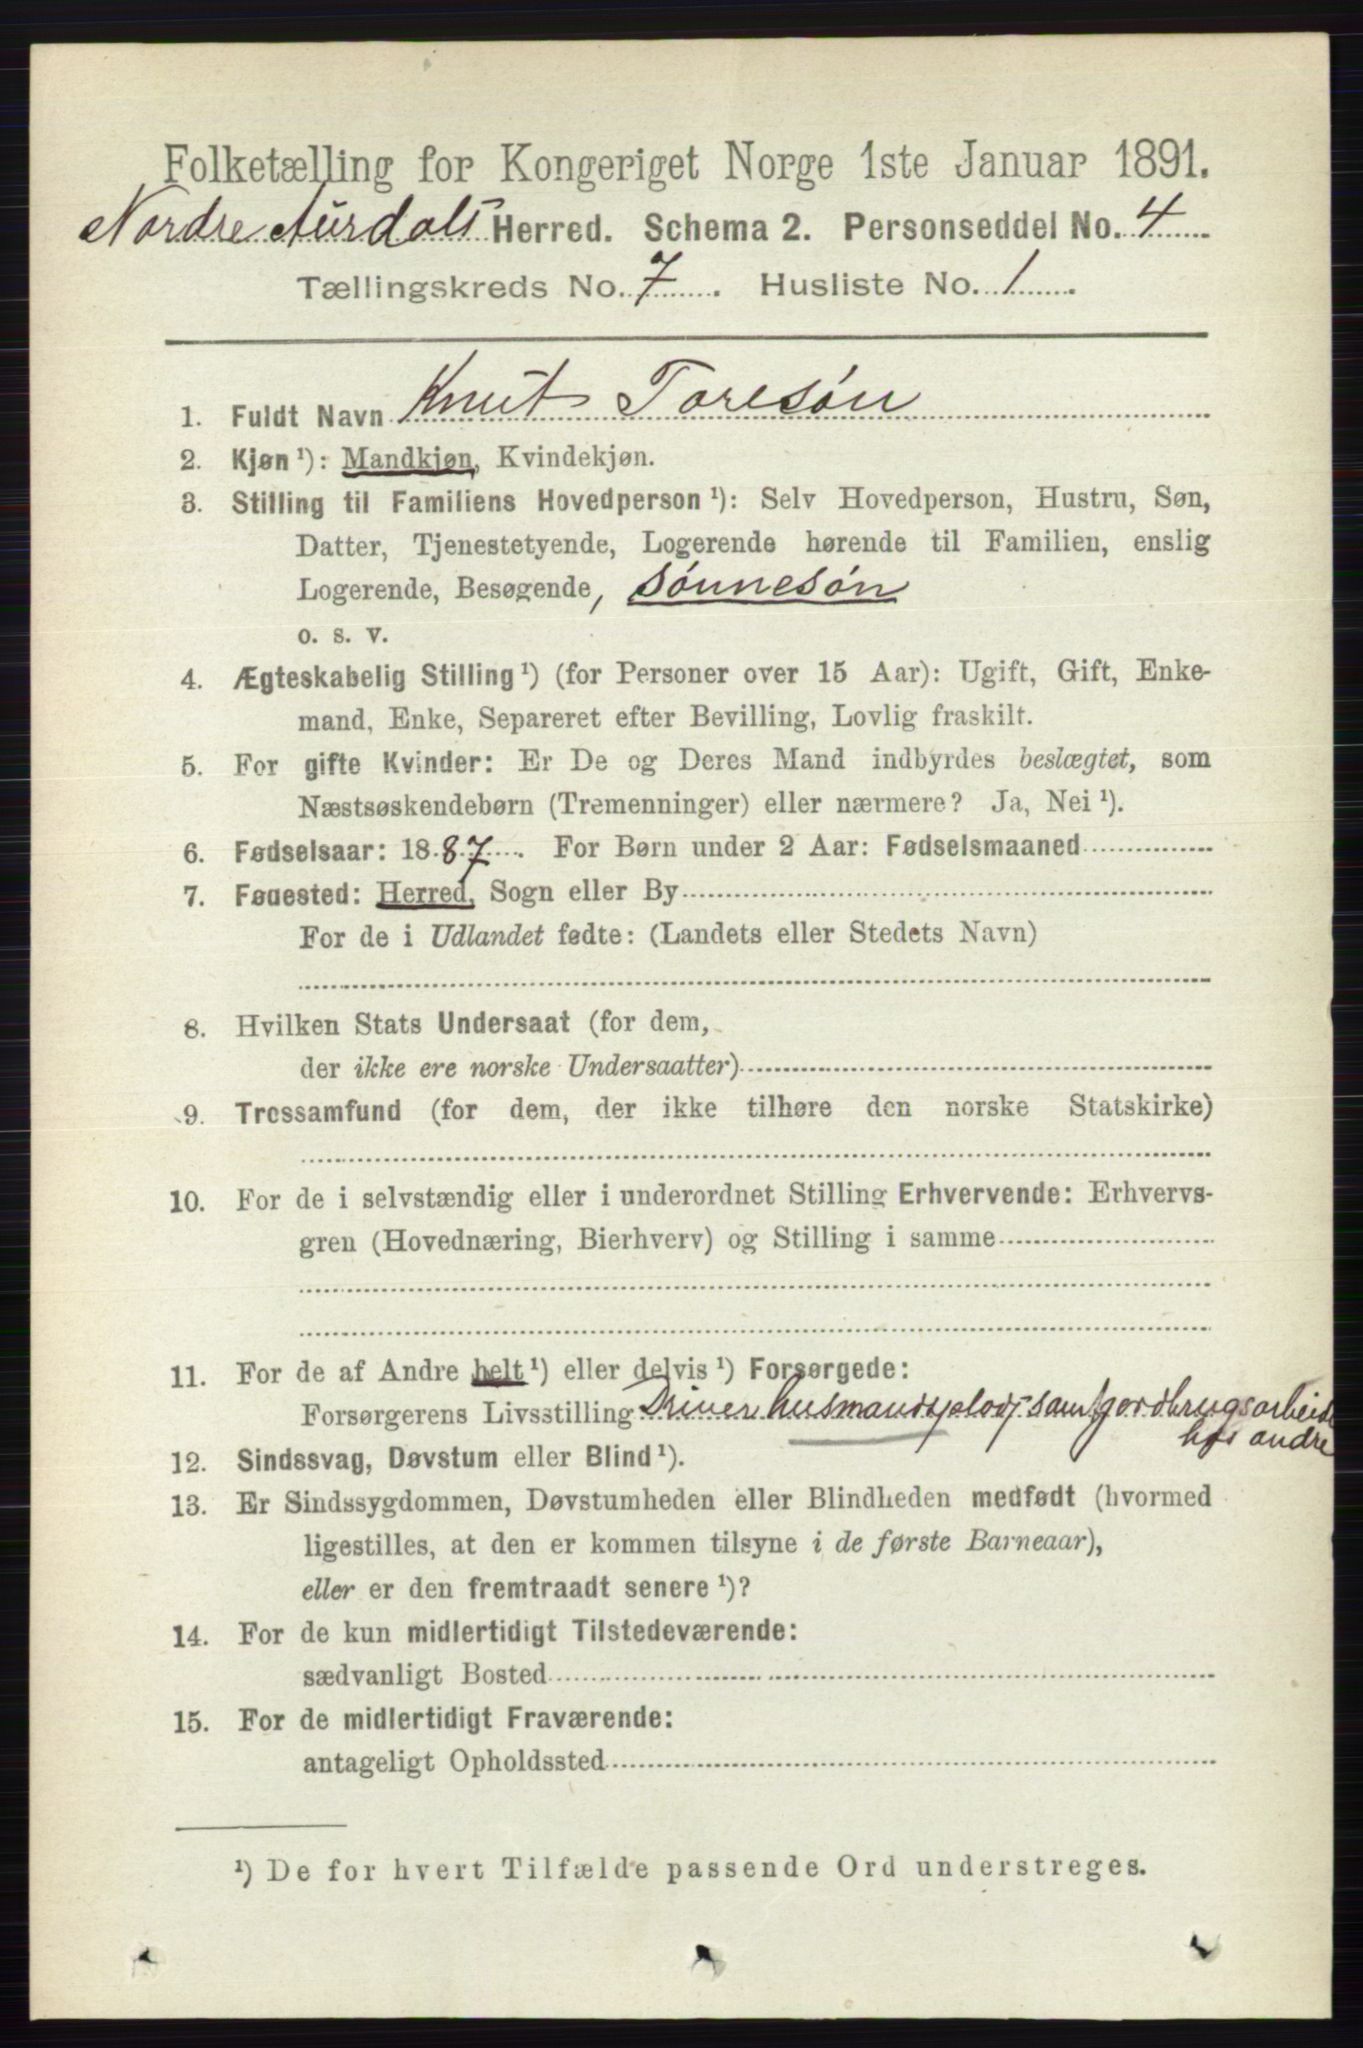 Folketælling for Kongeriget Norge 1ste Januar 1891.
Nordre Aurdals Herred. Schema 2. Personseddel No. 4
Tællingskreds No. 7. Husliste No. 1.
1. Fuldt Navn Knut Toresøn
2. Kjøn ¹): Mandkjøn, Kvindekjøn.
3. Stilling til Familiens Hovedperson ¹): Selv Hovedperson, Hustru, Søn,
Datter, Tjenestetyende, Logerende hørende til Familien, enslig
Logerende, Besøgende, sønnesøn
o. s. v.
4. Ægteskabelig Stilling ¹) (for Personer over 15 Aar): Ugift, Gift, Enke-
mand, Enke, Separeret efter Bevilling, Lovlig fraskilt.
5. For gifte Kvinder: Er De og Deres Mand indbyrdes beslægtet, som
Næstsøskendebørn (Tremenninger) eller nærmere? Ja, Nei ¹).
6. Fødselsaar: 1887. For Børn under 2 Aar: Fødselsmaaned
7. Fødested: Herred, Sogn eller By
For de i Udlandet fødte: (Landets eller Stedets Navn)
8. Hvilken Stats Undersaat (for dem,
der ikke ere norske Undersaatter)
9. Trossamfund (for dem, der ikke tilhøre den norske Statskirke)
10. For de i selvstændig eller i underordnet Stilling Erhvervende: Erhvervs-
gren (Hovednæring, Bierhverv) og Stilling i samme
11. For de af Andre helt ¹) eller delvis ¹) Forsørgede:
Forsørgerens Livsstilling Driver husmandsplads samt jordbrugsarbeide
hos andre
12. Sindssvag, Døvstum eller Blind ¹).
13. Er Sindssygdommen, Døvstumheden eller Blindheden medfødt (hvormed
ligestilles, at den er kommen tilsyne i de første Barneaar),
eller er den fremtraadt senere ¹)?
14. For de kun midlertidigt Tilstedeværende:
sædvanligt Bosted
15. For de midlertidigt Fraværende:
antageligt Opholdssted
¹) De for hvert Tilfælde passende Ord understreges.